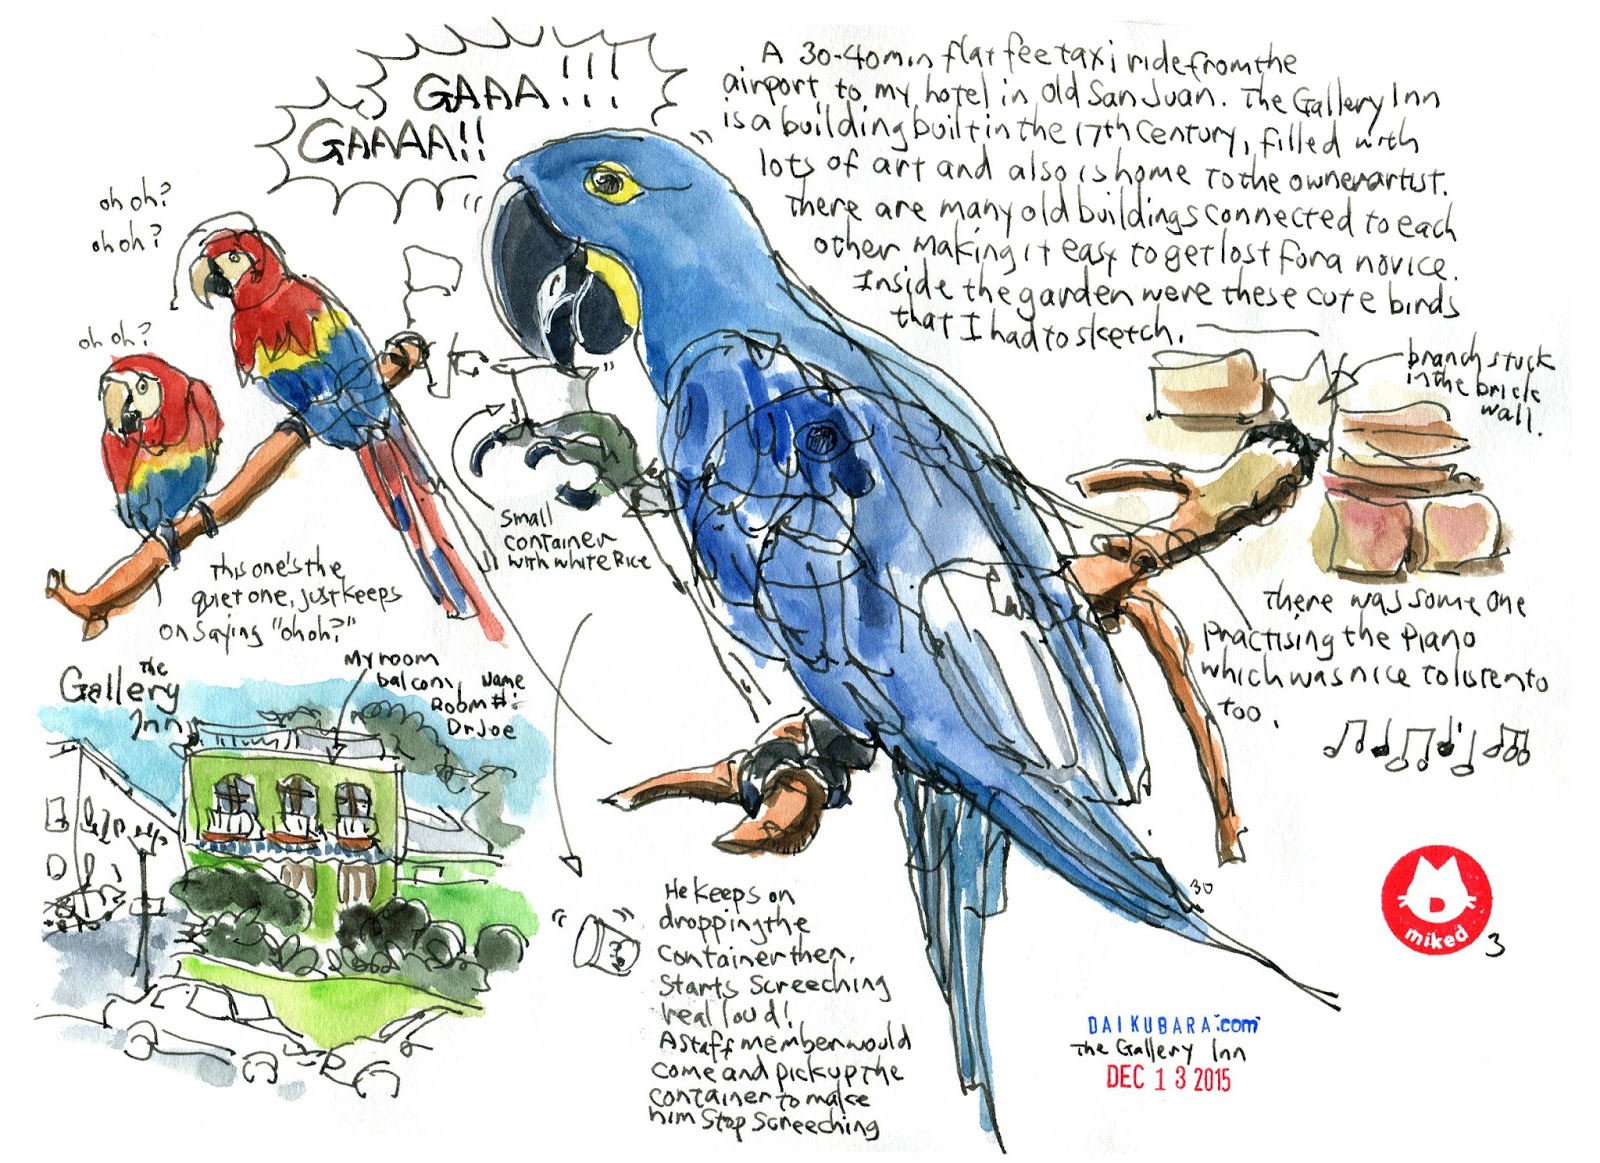 GAAA!!!
GAAAA!!
A 30-40min flat fee taxi ride from the
airport to my hotel in Old San Juan. The Gallery Inn
is a building built in the 17th Century, filled with
lots of art and also is home to the owner artist.
There are many old buildings connected to each
other making it easy to get lost for a novice.
Inside the garden were these cute birds
that I had to sketch.
oh oh?
oh oh?
oh oh?
branch stuck
in the brick
wall.
Small
container
with white Rice
This one's the
quiet one, just keeps
on saying "oh oh?"
There was someone
Practising the Piano
which was nice to listen to
too.
The
Gallery
Inn
My room
balcony
Name
Room #:
Dr Joe
He keeps on
dropping the
container then,
starts screeching
real loud!
A staff member would
come and pick up the
container to make
him stop screeching
30
D
miked
3
DAIKUBARA.com
The Gallery Inn
DEC 13 2015